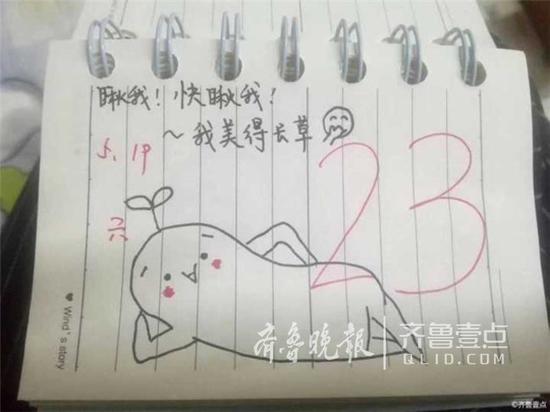 瞅我！快瞅我！
~我美得长草
5.19
六
23
♥ Wind's story
齐鲁晚报
齐鲁壹点
QLID.COM
©齐鲁壹点